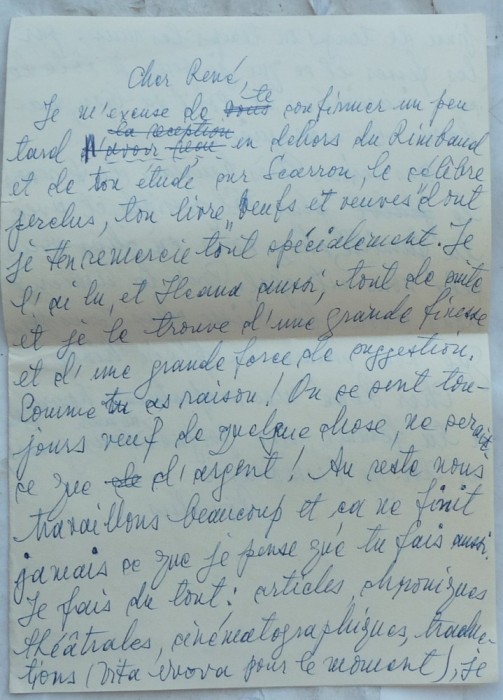 Cher René,
Je m'excuse de vous te confirmer un peu
la réception
tard avoir reçu en dehors du Rimbaud
et de ton étude sur Scarron, le célèbre
perclus, ton livre „Veufs et veuves" dont
je t'en remercie tout spécialement. Je
l'ai lu, et Ileana aussi, tout de suite
et je le trouve d'une grande finesse
et d'une grande force de suggestion.
Comme tu as raison! On se sent tou-
jours veuf de quelque chose, ne serait
ce que de d'argent! Au reste nous
travaillons beaucoup et ça ne finit
jamais ce que je pense que tu fais aussi.
Je fais du tout: articles, chroniques
théâtrales, cinématographiques, traduc-
tions (Vita pour le moment), je